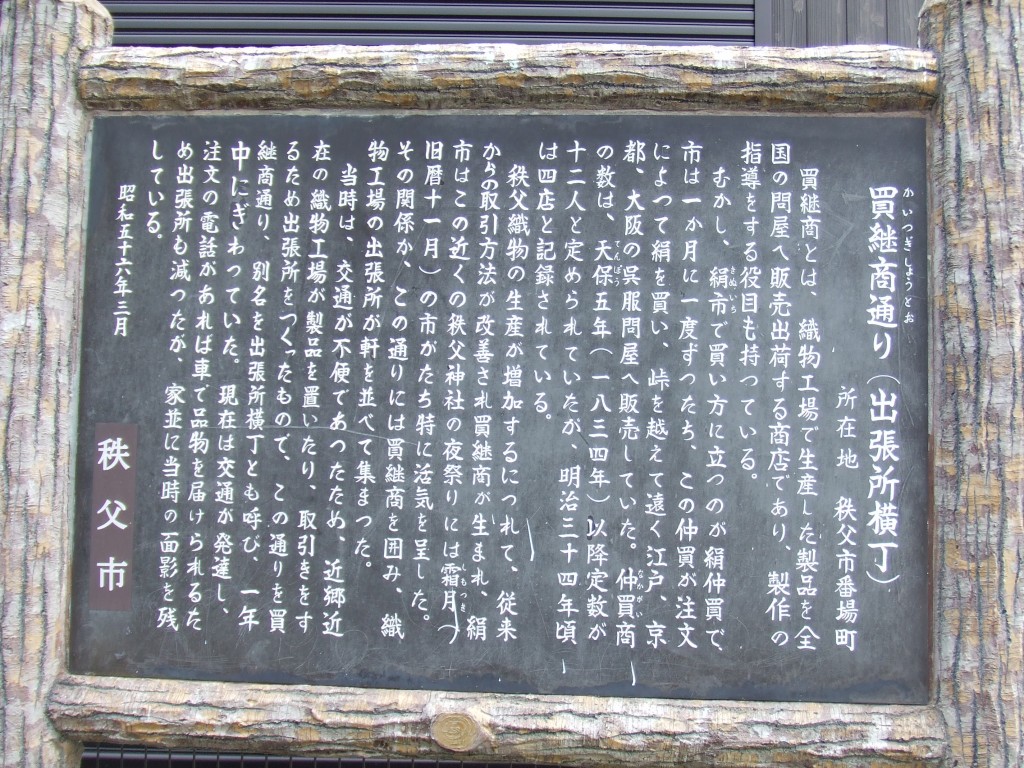 買継商通り（出張所横丁）
かいつぎしょうとお
所在地　秩父市番場町
買継商とは、織物工場で生産した製品を全
国の問屋へ販売出荷する商店であり、製作の
指導をする役目も持つている。
むかし、絹市で買い方に立つのが絹仲買で、
きぬいち
市は一か月に一度ずつたち、この仲買が注文
によつて絹を買い、峠を越えて遠く江戸、京
都、大阪の呉服問屋へ販売していた。仲買商
なかがい
の数は、天保五年（一八三四年）以降定数が
てんぽう
十二人と定められていたが、明治三十四年頃
は四店と記録されている。
秩父織物の生産が増加するにつれて、従来
からの取引方法が改善され買継商が生まれ、絹
市はこの近くの秩父神社の夜祭りには霜月（
しもつき
旧暦十一月）の市がたち特に活気を呈した。
その関係か、この通りには買継商を囲み、織
物工場の出張所が軒を並べて集まつた。
当時は、交通が不便であつたため、近郷近
在の織物工場が製品を置いたり、取引きをす
るため出張所をつくつたもので、この通りを買
継商通り、別名を出張所横丁とも呼び、一年
中にぎわつていた。現在は交通が発達し、
注文の電話があれば車で品物を届けられるた
め出張所も減つたが、家並に当時の面影を残
している。
昭和五十六年三月
秩父市